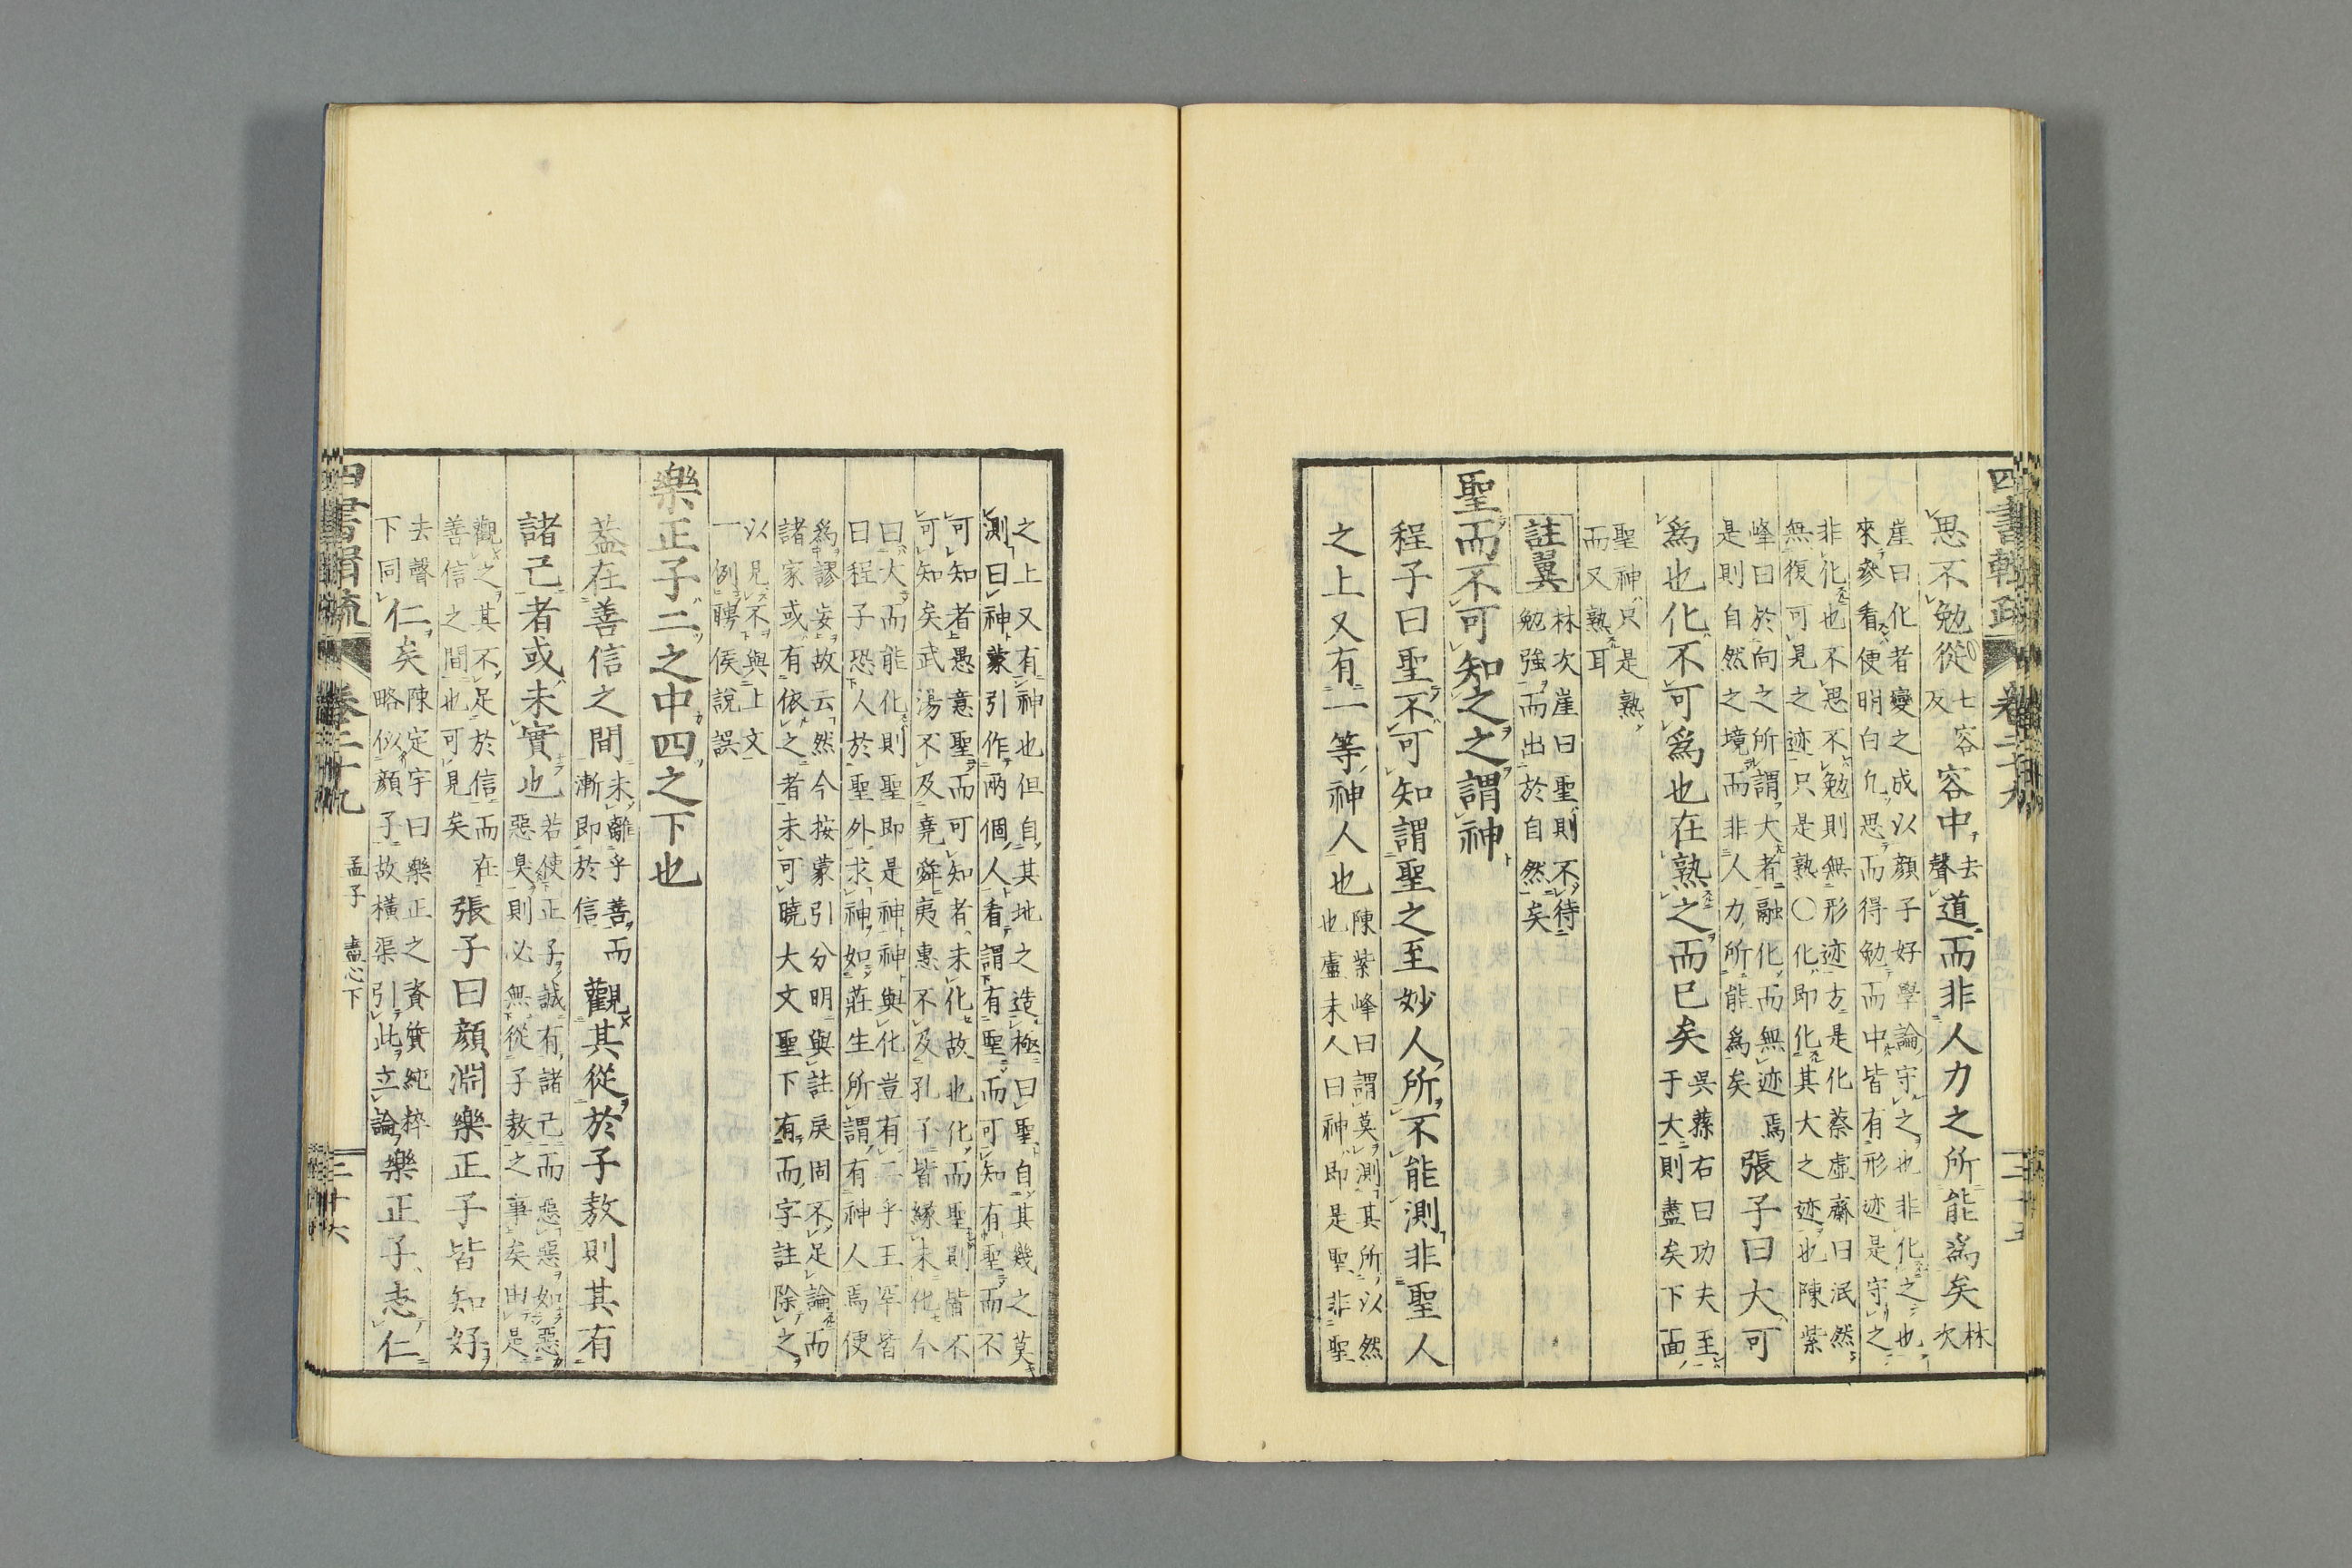 四書輯疏 卷二十九 三十五
思不勉從七容反容中去聲道而非人力之所能爲矣林次
崖曰化者變之成以顔子好學論守之也非化之也
來參看便明白凡思而得勉而中皆有形迹是守之
非化也不思不勉則無形迹方是化蔡虚齋曰泯然
無復可見之迹只是熟〇化即化其大之迹也陳紫
峰曰於向之所謂大者融化而無迹焉張子曰大可
是則自然之境而非人力所能爲矣
爲也化不可爲也在熟之而已矣吳蓀右曰功夫至
于大則盡矣下面
聖神只是熟
而又熟耳
註翼林次崖曰聖則不待
勉強而出於自然矣
聖而不可知之之謂神
程子曰聖不可知謂聖之至妙人所不能測非聖人
之上又有一等神人也陳紫峰曰謂莫測其所以然
也盧未人曰神即是聖非聖
之上又有神也但自其地之造極曰聖自其幾之莫
測曰神蒙引作兩個人看謂有聖而可知有聖而不
可知者愚意聖而可知者未化故也化而聖則皆不
可知矣武湯不及堯舜夷惠不及孔子皆縁未化今
曰大而能化則聖即是神神與化豈有二乎王罕皆
曰程子恐人於聖外求神如莊生所謂有神人焉便
爲謬妄故云然今按蒙引分明與註戻固不足論而
諸家或有依之者未可曉大文聖下有而字註除之
以見不與上文
一例聘侯説誤
樂正子二之中四之下也
葢在善信之間未離乎善而
漸即於信觀其從於子敖則其有
諸己者或未實也若使正子誠有諸己而惡惡如惡
惡臭則必無從子敖之事矣由是
觀之其不足於信而在
善信之間也可見矣張子曰顔淵樂正子皆知好
去聲
下同仁矣陳定宇曰樂正之資質純粹
略似顔子故橫渠引此立論樂正子志仁
四書輯疏 卷二十九 孟子 盡心下 三十六